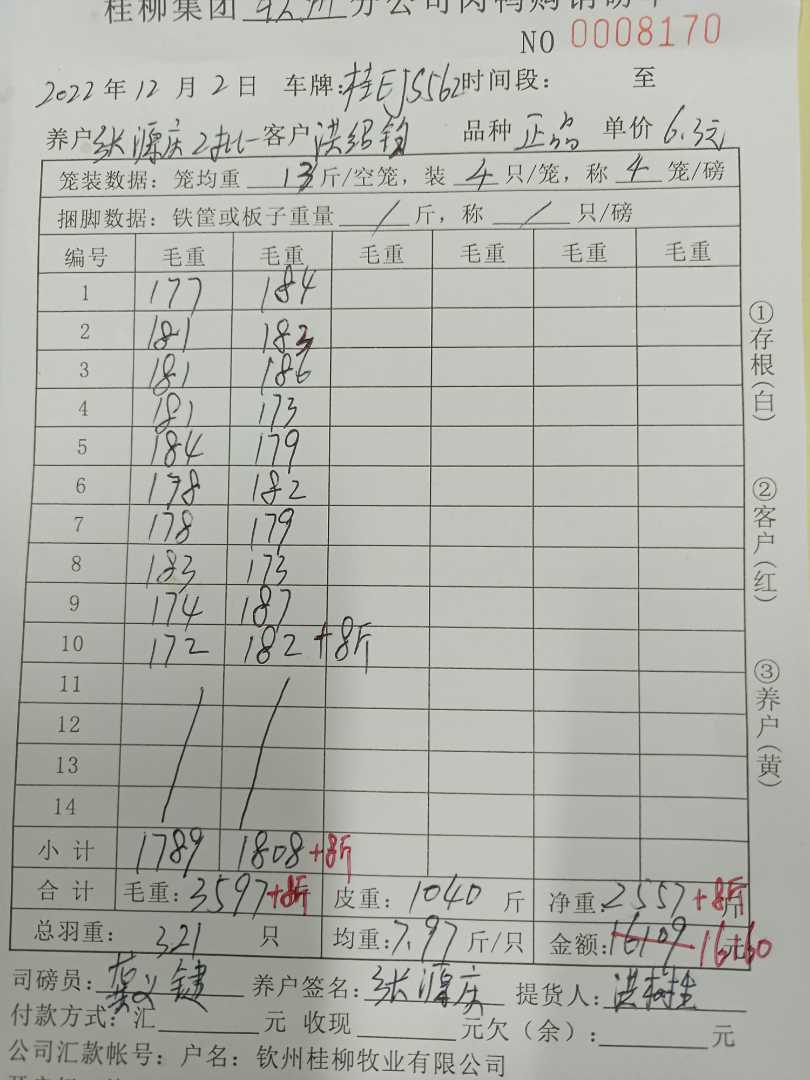 桂柳集团 钦州 分公司肉鸭购销磅单
NO 0008170
2022年12月2日 车牌:桂EJS562时间段: 至
养户张源庆2批 客户洪绍钧 品种 正品 单价 6.3元
笼装数据: 笼均重 13 斤/空笼, 装 4 只/笼, 称 4 笼/磅
捆脚数据: 铁筐或板子重量 / 斤, 称 / 只/磅
编号 毛重 毛重 毛重 毛重 毛重 毛重
1 177 184
2 181 183
3 181 186
4 181 173
5 184 179
6 178 182
7 178 179
8 183 173
9 174 187
10 172 182+8斤
11
12
13
14
小计 1789 1808+8斤
合计 毛重:3597+8斤 皮重: 1040 斤 净重:2557+8斤
总羽重: 321 只 均重:7.97 斤/只 金额:16109 16160
司磅员: 键 养户签名: 张源庆 提货人: 洪树生
付款方式: 汇 元 收现 元欠(余): 元
公司汇款帐号: 户名: 钦州桂柳牧业有限公司
①存根(白)
②客户(红)
③养户(黄)